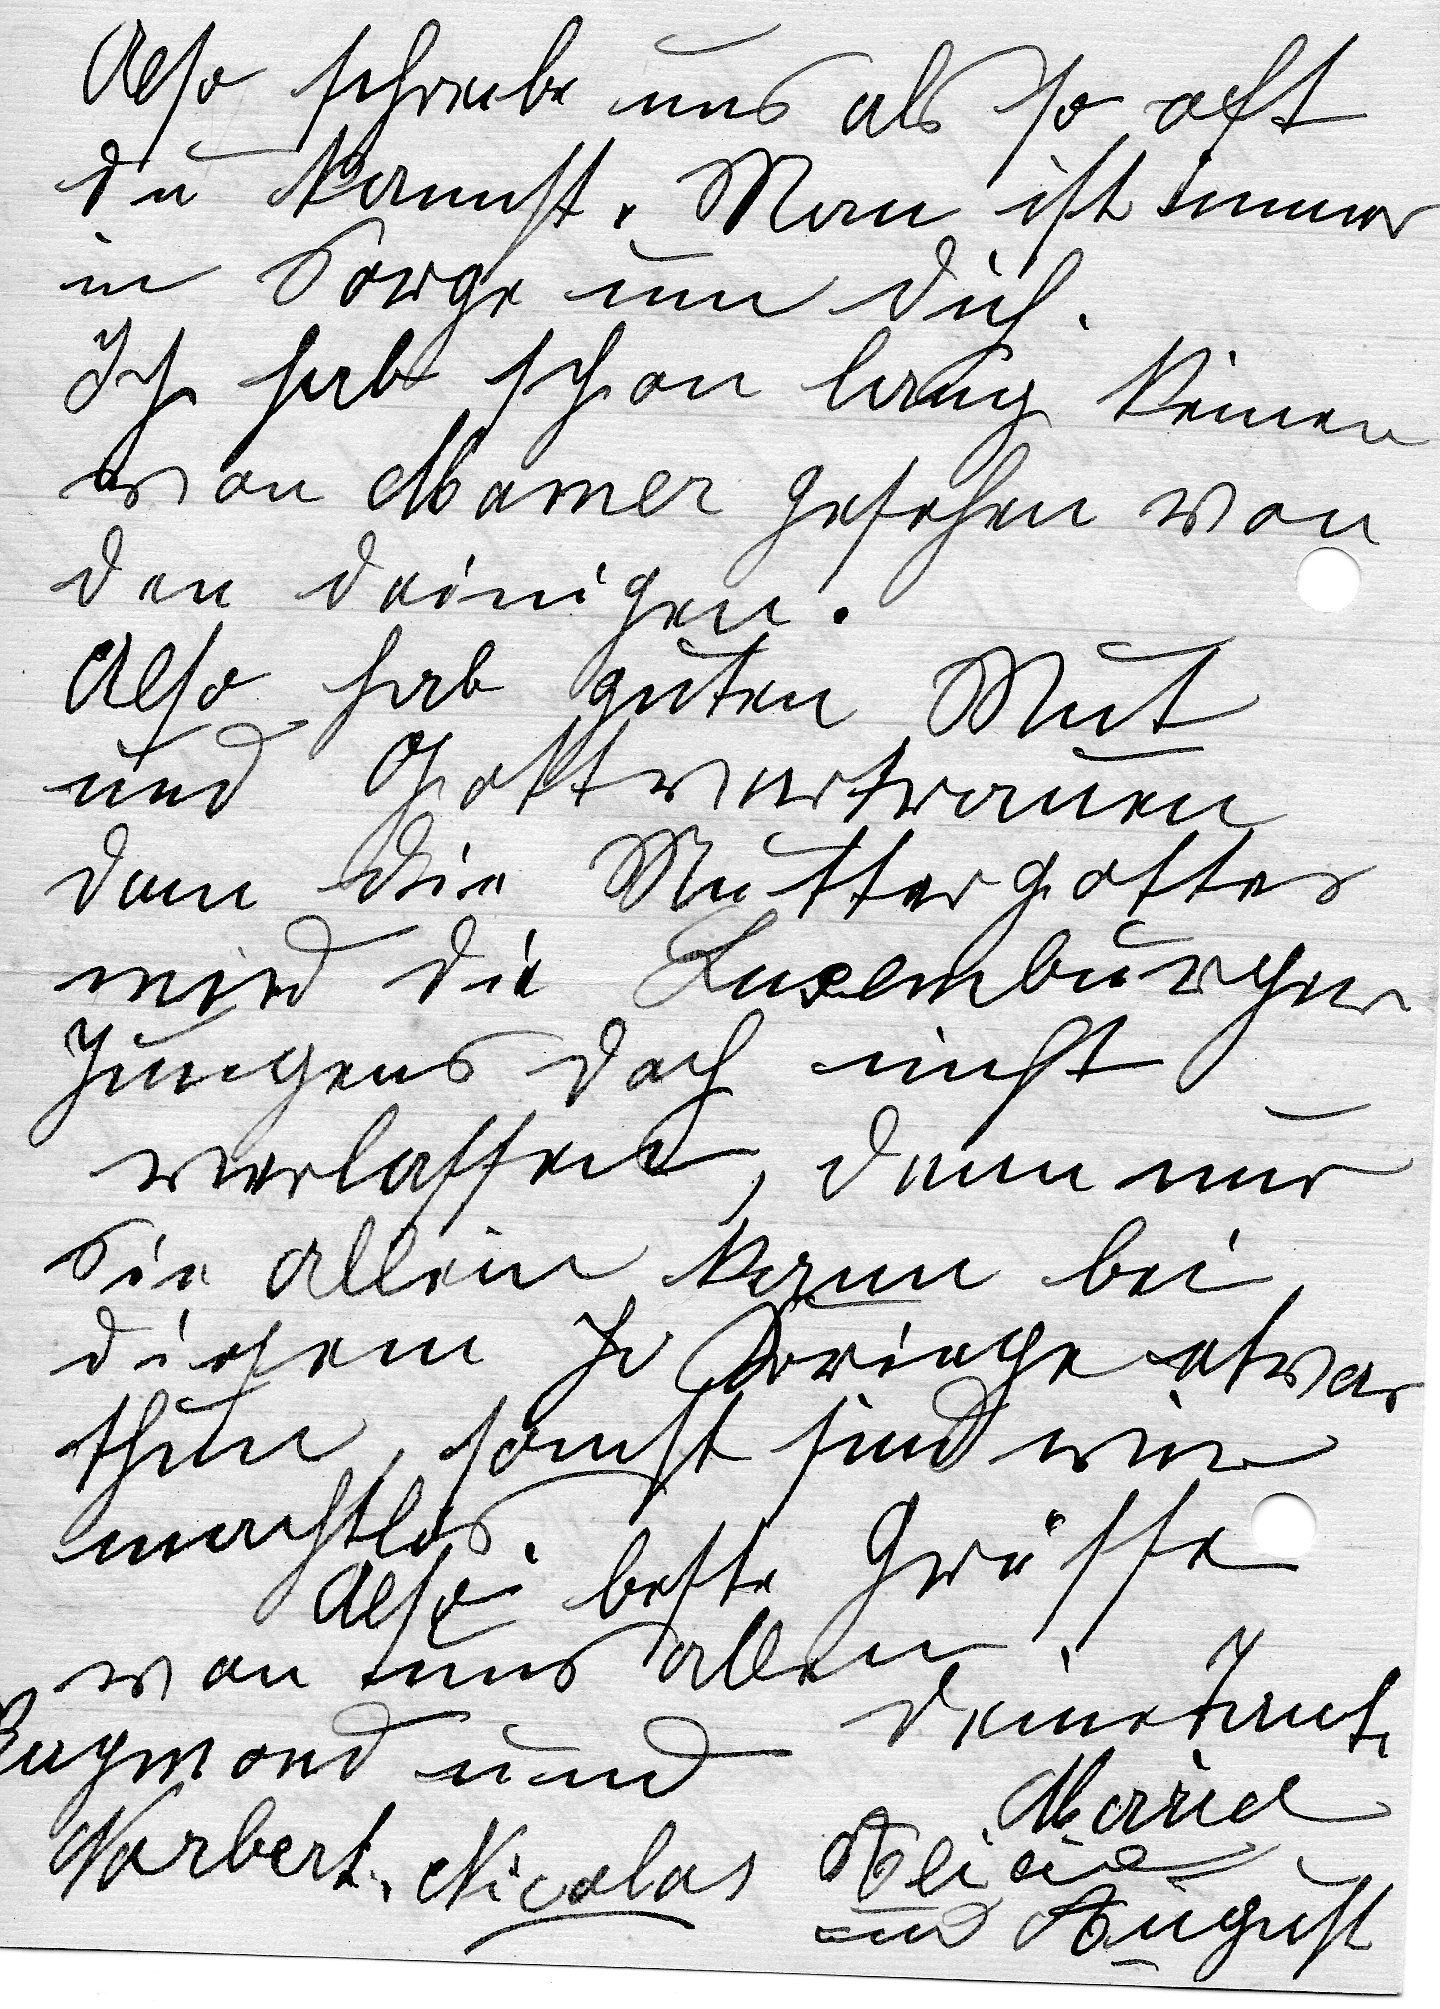 Also schreibe uns als so oft
du kannst. Man ist immer
in Sorge um dich.
Ich hab schon lang keinen
von Mamer gesehen von
den deinigen.
Also hab guten Mut
und Gottvertrauen
den die Muttergottes
wird die Luxemburger
Jungens doch nicht
verlassen, denn nur
Sie allein kann bei
diesem Kriege etwas
thun, sonst sind wir
machtlos.
Also beste Grüsse
von uns allen
deine Tante
Raymond und
Maria
Norbert, Nicolas
und August